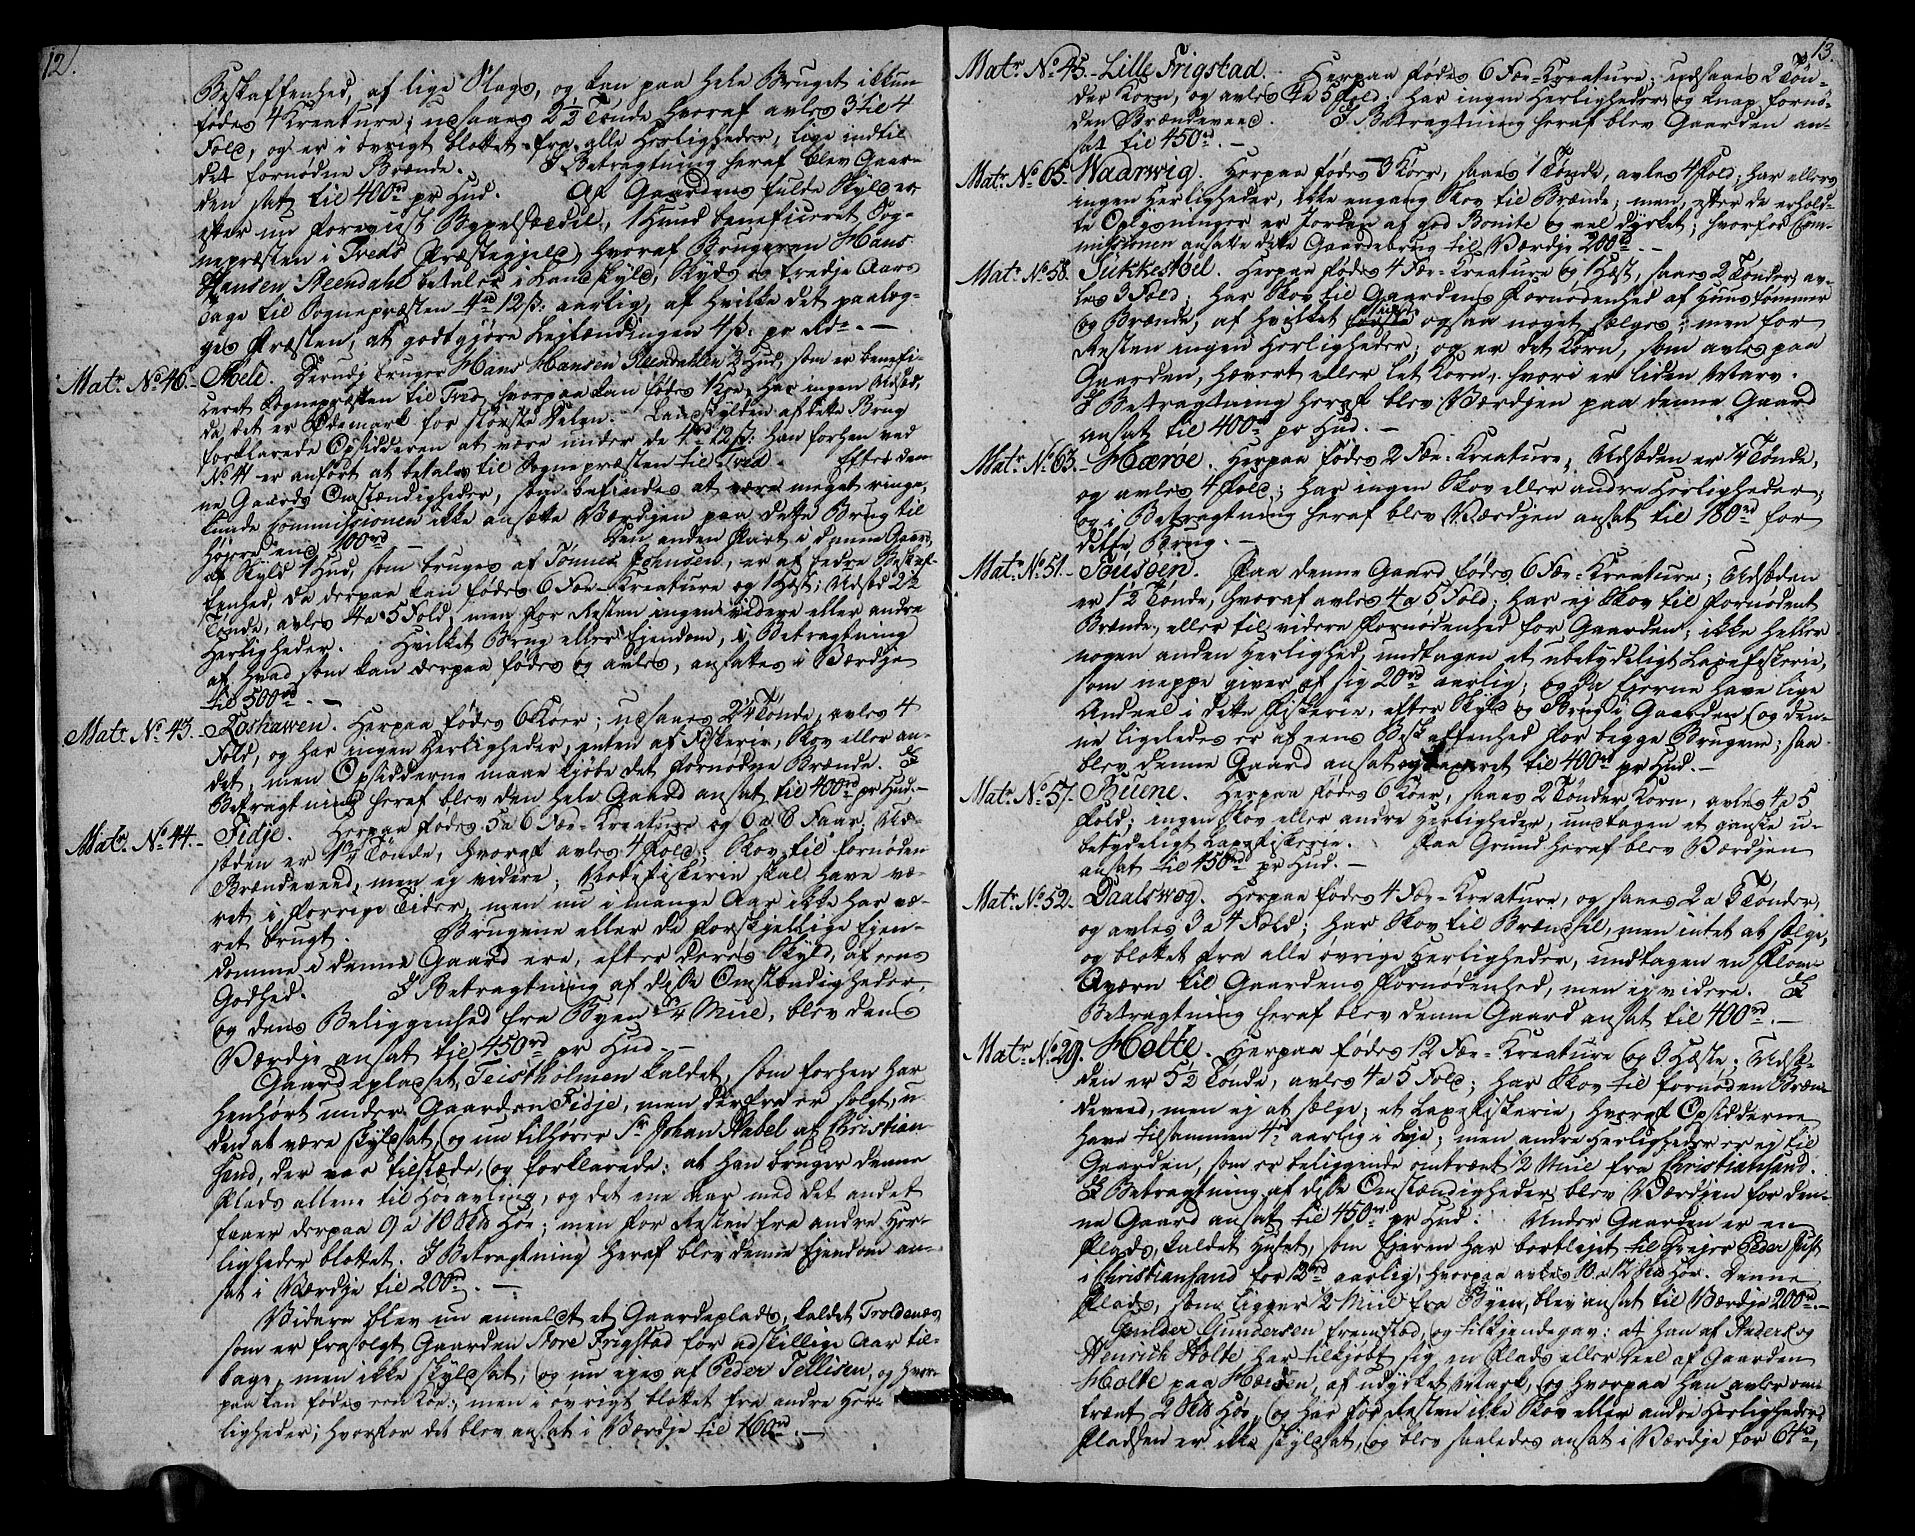 12.
Beskaffenhed, af lige Slags, og kan paa hele Bruget ikkun
födes 4 Kreature; udsaaes 2½ Tönde, hvoraf avles 3 til 4
Fold, og er i övrigt blottet fra alle Herligheder, lige indtil
det fornödne Brænde. I Betragtning heraf blev Gaar-
den sat til 400rd pr Hud. Af Gaardens fulde Skyld er
efter nu foreviist Bygselseddel, 1 Hund beneficeret Sog-
nepræsten i Treds Præstegjeld, hvoraf Brugeren Hans
Hansen Steendahl betaler i Landskyld, Skyds og tredje Aars
Tage til Sognepræsten 4rd 12ß: aarlig, af hvilke det paalæg-
ges Præsten, at godtgjöre Lejlændingen 4ß: pr Rd. —
Matr No 46. Stole. Derudj bruger Hans Hansen Steendahlen ½ Hud, som er benefi-
ceret Sognepræsten til Tred, hvorpaa kan födes 1 Koe; har ingen Udsæd,
da det er Ödemark for störste Delen. Landskylden af dette Brug
forklarede Opsidderen at være under de 4rd 12ß: han forhen ved
No 41 er anfört at betale til Sognepræsten til Tved. Efter den-
ne Gaards Omstændigheder, som befindes at være meget ringe,
kunde Commissionen ikke ansætte Værdjen paa dette Brug til
höjere end 100rd Den anden Part i denne Gaard,
af Skyld 1 Hud, som bruges af Tönnes Johnsen, er af bedre Beskaf-
fenhed, da derpaa kan födes 6 Fæe-Kreature og 1 Hest; Udsæd 2½
Tönde, avles 4 a 5 Fold, men for Resten ingen videre eller andre
Herligheder. Hvilket Brug eller Ejendom, i Betragtning
af hvad som kan derpaa födes og avles, ansattes i Værdje
til 500rd. —
Matr No 43. Roshawen. Herpaa födes 6 Köer; udsaaes 2¼ Tönde, avles 4
Fold, og har ingen Herligheder, enten af Fiskerie, Skov eller an-
det, men Opsidderne maae kjöbe det fornödne Brænde. I
Betragtning heraf blev den hele Gaard ansat til 400rd pr Hud. —
Matr No 44. Fidje. Herpaa födes 5 a 6 Fæe-Kreature og 6 a 8 Faar. Ud-
sæden er 1¾ Tönde, hvoraf avles 4 Fold; Skov til fornöden
Brændeveed, men ej videre; Nodefiskerie skal have væ-
ret i forrige Tider, men nu i mange Aar ikke har væ-
ret brugt. Brugene eller de forskjellige Ejen-
domme i denne Gaard ere, efter deres Skyld, af eens
Godhed. I Betragtning af disse Omstændigheder,
og dens Beliggenhed fra Byen ¼ Miil, blev dens
Værdje ansat til 450rd pr Hud. —
Gaardepladset, Teistholmen kaldet, som forhen har
henhört under Gaarden Fidje, men derfra er solgt, u-
den at være skyldsat, og nu tilhörer Sr Johan Nabel af Christian-
sand, der var tilstæde, og forklarede: at han bruger denne
Plads allene til Höeavling, og det ene Aar med det andet
faaer derpaa 9 a 10 Læs Höe; men for Resten fra andre Her-
ligheder blottet. I Betragtning heraf blev denne Ejendom an-
sat i Værdje til 200rd. —
Videre blev nu anmeldt et Gaardeplads, kaldet Troldenæs,
som er frasolgt Gaarden Store Frigstad for adskillige Aar til-
bage, men ikke skyldsat, og nu eyes af Peder Tellisen, og hvor-
paa kan födes een Koe, men i övrigt blottet fra andre Her-
ligheder; hvorfor det blev ansat i Værdje til 100rd. —
13.
Matr No 45. Lille Frigstad. Herpaa födes 6 Fæe-Kreature; udsaaes 2 Tön-
der Korn, og avles 4 a 5 Fold; har ingen Herligheder, og knap fornö-
den Brændeveed. I Betragtning heraf blev Gaarden an-
sat til 450rd. —
Matr No 65. Waarwig. Herpaa födes 3 Köer, saaes 1 Tönde, avles 4 Fold; har ellers
ingen Herligheder, ikke engang Skov til Brænde; men, efter de erhold-
te Oplysninger er Jorden af god Bonite og vel dyrket; hvorfor Com-
missionen ansatte dette Gaardebrug til Værdje 200rd. —
Matr No 58. Sukkestöel. Herpaa födes 4 Fæe-Kreature og 1 Hæst, saaes 2 Tönder, av-
les 3 Fold; har Skov til Gaardens Fornödenhed af Huustömmer
og Brænde, af hvilket ogsaa noget sælges; men for
Resten ingen Herligheder; og er det Korn, som avles paa
Gaarden, Havert eller let Korn, hvori er liden Marv.
I Betragtning heraf blev Værdjen paa denne Gaard
ansat til 400rd pr Hud. —
Matr No 63. Hæroe. Herpaa födes 2 Fæe-Kreature; Udsæden er ¼ Tönde,
og avles 4 Fold; har ingen Skov eller andre Herligheder;
og i Betragtning heraf blev Værdjen ansat til 180rd for
dette Brug. —
Matr No 51. Touisöen. Paa denne Gaard födes 6 Fæe-Kreature; Udsæden
er 1½ Tönde, hvoraf avles 4 a 5 Fold; har ej Skov til fornödent
Brænde, eller til videre Fornödenhed for Gaarden; ikke heller
nogen anden Herlighed, undtagen et ubetydeligt Laxefiskerie,
som neppe giver af sig 20rd aarlig; og da Ejerne have lige
Andeel i dette Fiskerie, efter Skyld og Brug i Gaarden (og den-
ne ligeledes er af eens Beskaffenhed for begge Brugene; saa
blev denne Gaard ansat og taxeret til 400rd pr Hud. —
Matr No 57. Buene. Herpaa födes 6 Köer, saaes 2 Tönder Korn, avles 4 a 5
Fold; ingen Skov eller andre Herligheder, undtagen et ganske u-
betydeligt Laxefiskerie. Paa Grund heraf blev Værdjen
ansat til 450rd pr Hud. —
Matr No 52. Daalswog. Herpaa födes 4 Fæe-Kreature, og saaes 2 a 3 Tönder,
og avles 3 a 4 Fold; har Skov til Brændsel, men intet at sælge,
og blottet fra alle övrige Herligheder, undtagen en Flom-
Qværn til Gaardens Fornödenhed, men ej videre. I
Betragtning heraf blev denne Gaard ansat til 400rd. —
Matr No 29. Holte. Herpaa födes 12 Fæe-Kreature og 3 Hæste. Udsæ-
den er 5½ Tönde, avles 4 a 5 Fold; har Skov til fornöden Bræn-
deveed, men ej at sælge; et Laxefiskerie, hvoraf Opsidderne
have tilsammen 4rd aarlig i Leje; men andre Herligheder er ej til
Gaarden, som er beliggende omtrent 2 Miil fra Christiansand.
I Betragtning af disse Omstændigheder blev Værdjen for den-
ne Gaard ansat til 450rd pr Hud. Under Gaarden er en
Plads, kaldet Hullet, som Ejeren har bortlejet til Grejer Peder Just
i Christiansand for 12rd aarlig, hvorpaa avles 10 a 12 Læs Höe. Denne
Plads, som ligger 2 Miil fra Byen, blev ansat til Værdje 200rd. —
Gunder Gundersen fremstod, og tilkjendegav: at han af Anders og
Henrich Holte har tilkjöbt sig en Plads eller Deel af Gaarden
Holte paa Hæroen, af udyrket Mark, og hvorpaa han avler om-
trent 2 Læs Höe, og har for Resten ikke Skov eller andre Herligheder;
Pladsen er ikke skyldsat, og blev saaledes ansat i Værdje for 64rd,